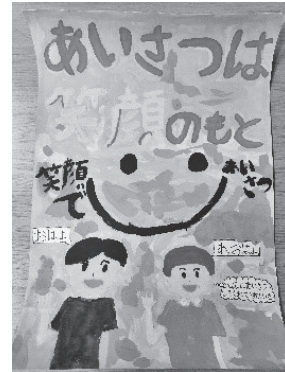 あいさつは
笑顔のもと
笑顔で
あいさつ
おはよ
おはよ